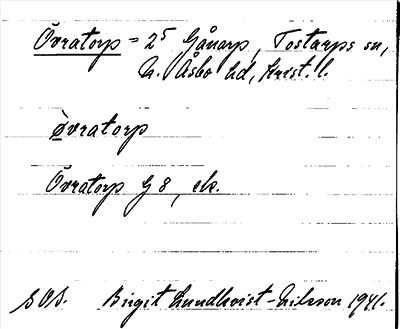 Övratorp = 2⁵ Gånarp, Tostarps sn,
N. Åsbo hd, Krist. l.
òvratorp
Övratorp G 8, ek.
SOS. Birgit Lundkvist-Nilsson 1941.